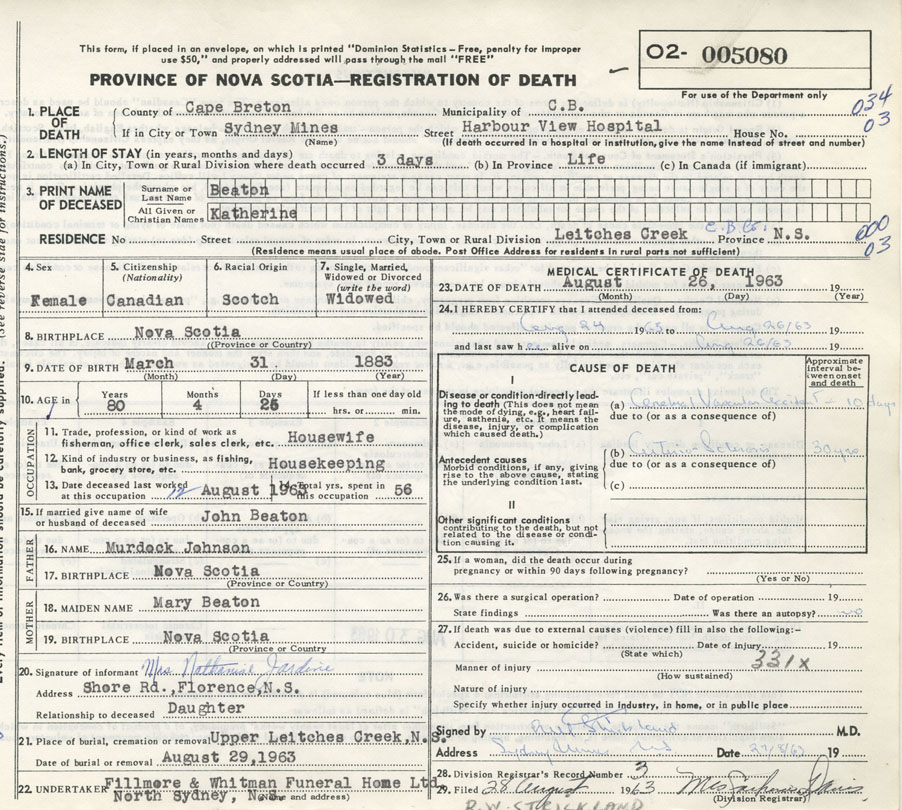 This form, if placed in an envelope, on which is printed "Dominion Statistics – Free, penalty for improper
use $50," and properly addressed will pass through the mail "FREE"
PROVINCE OF NOVA SCOTIA—REGISTRATION OF DEATH
02- 005080
For use of the Department only
034
03
1. PLACE OF DEATH
County of Cape Breton Municipality of C.B.
If in City or Town Sydney Mines Street Harbour View Hospital House No.
(Name) (If death occurred in a hospital or institution, give the name instead of street and number)
2. LENGTH OF STAY (in years, months and days)
(a) In City, Town or Rural Division where death occurred 3 days (b) In Province Life (c) In Canada (if immigrant)
3. PRINT NAME OF DECEASED
Surname or Last Name Beaton
All Given or Christian Names Katherine
RESIDENCE No Street City, Town or Rural Division Leitches Creek C.B.Co. Province N.S.
000
03
(Residence means usual place of abode. Post Office Address for residents in rural parts not sufficient)
4. Sex Female
5. Citizenship (Nationality) Canadian
6. Racial Origin Scotch
7. Single, Married, Widowed or Divorced (write the word) Widowed
8. BIRTHPLACE Nova Scotia
(Province or Country)
9. DATE OF BIRTH March 31 1883
(Month) (Day) (Year)
10. AGE in Years 80 Months 4 Days 26 If less than one day old hrs. or min.
OCCUPATION
11. Trade, profession, or kind of work as fisherman, office clerk, sales clerk, etc. Housewife
12. Kind of industry or business, as fishing, bank, grocery store, etc. Housekeeping
13. Date deceased last worked at this occupation 12 August 1963
14. Total yrs. spent in this occupation 56
15. If married give name of wife or husband of deceased John Beaton
FATHER
16. NAME Murdock Johnson
17. BIRTHPLACE Nova Scotia
(Province or Country)
MOTHER
18. MAIDEN NAME Mary Beaton
19. BIRTHPLACE Nova Scotia
(Province or Country)
20. Signature of informant Mrs. Nathaniel Jardine
Address Shore Rd., Florence, N.S.
Relationship to deceased Daughter
21. Place of burial, cremation or removal Upper Leitches Creek, N.S.
Date of burial or removal August 29, 1963
22. UNDERTAKER Fillmore & Whitman Funeral Home Ltd.
North Sydney, N.S.
(Name and address)
MEDICAL CERTIFICATE OF DEATH
23. DATE OF DEATH August 26, 1963 19
(Month) (Day) (Year)
24. I HEREBY CERTIFY that I attended deceased from:
Aug 24 1963 to Aug 26/63
and last saw h alive on Aug 26/63 19
CAUSE OF DEATH
Approximate interval between onset and death
I
Disease or condition directly leading to death (This does not mean the mode of dying, e.g., heart failure, asthenia, etc. It means the disease, injury, or complication which caused death.)
(a) Cerebral Vascular Accident – 10 days
due to (or as a consequence of)
Antecedent causes
Morbid conditions, if any, giving rise to the above cause, stating the underlying condition last.
(b) Arterio Sclerosis 30 yrs
due to (or as a consequence of)
(c)
II
Other significant conditions
contributing to the death, but not related to the disease or condition causing it.
25. If a woman, did the death occur during pregnancy or within 90 days following pregnancy?
(Yes or No)
26. Was there a surgical operation? Date of operation 19
State findings Was there an autopsy? no
27. If death was due to external causes (violence) fill in also the following:–
Accident, suicide or homicide? Date of injury 19
(State which)
Manner of injury 331x
(How sustained)
Nature of injury
Specify whether injury occurred in industry, in home, or in public place
Signed by M.D.
Address Sydney Mines NS Date 27/8/63 19
28. Division Registrar's Record Number 3
29. Filed 28 August 1963 Mrs
(Division Registrar)
R.W. STRICKLAND
(See reverse side for instructions.)